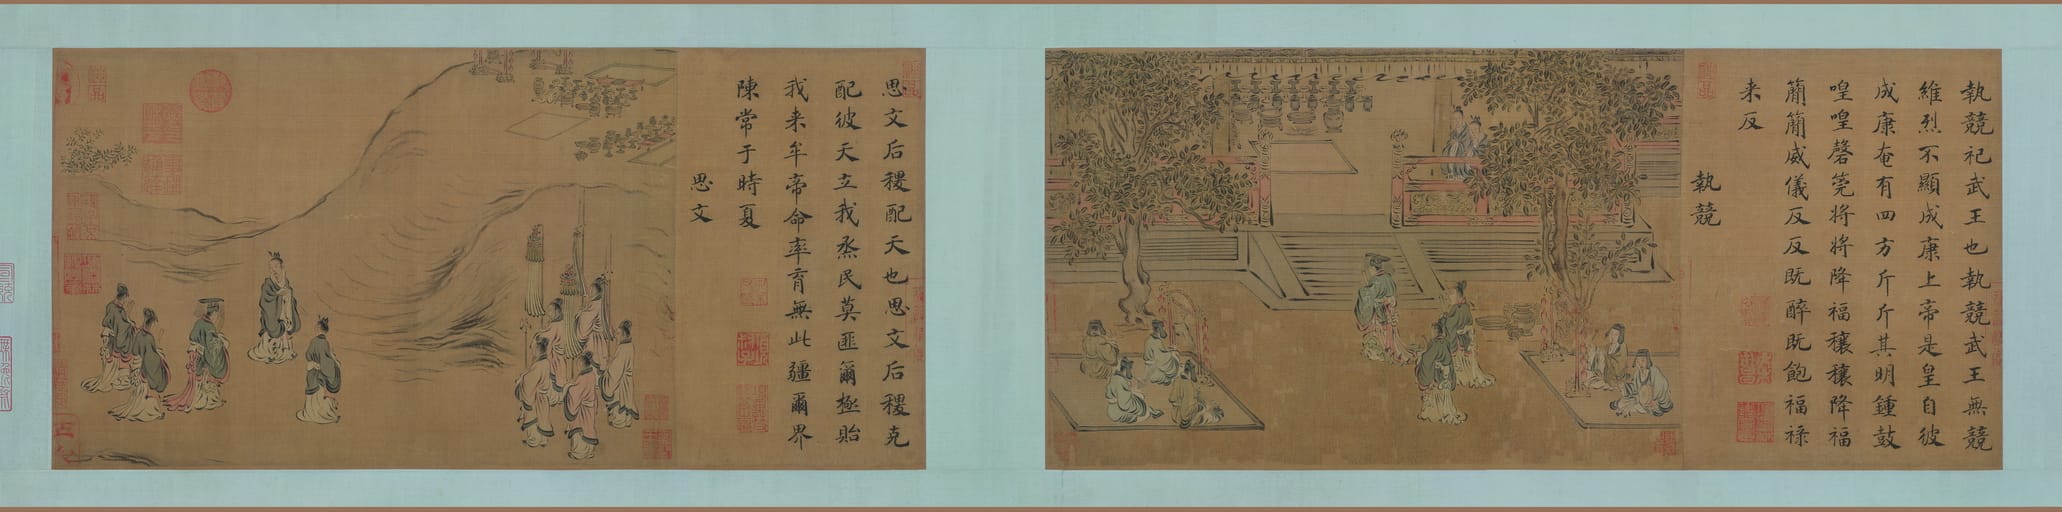 執競祀武王也執競武王無競
維烈不顯成康上帝是皇自彼
成康奄有四方斤斤其明鍾鼓
喤喤磬筦將將降福穰穰降福
簡簡威儀反反既醉既飽福祿
来反
執競
思文后稷配天也思文后稷克
配彼天立我烝民莫匪爾極貽
我来牟帝命率育無此疆爾界
陳常于時夏
思文